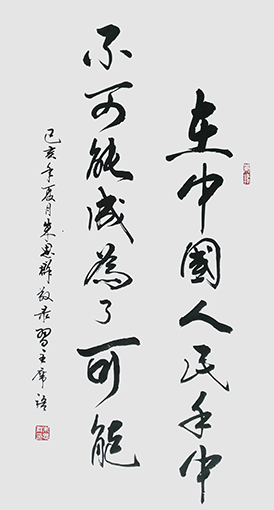 在中國人民手中
不可能成為了可能
己亥年夏月朱惠群敬录習主席语